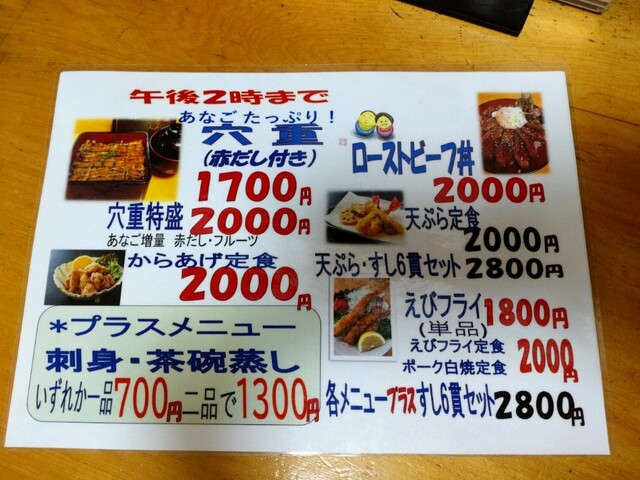 午後2時まで
あなごたっぷり！
穴重
(赤だし付き)
1700円
穴重特盛 2000円
あなご増量 赤だし・フルーツ
からあげ定食
2000円
*プラスメニュー
刺身・茶碗蒸し
いずれか一品700円二品で1300円
ローストビーフ丼
2000円
天ぷら定食
2000円
天ぷら・すし6貫セット 2800円
えびフライ 1800円
(単品)
えびフライ定食
ポーク白焼定食 2000円
各メニュープラスすし6貫セット 2800円